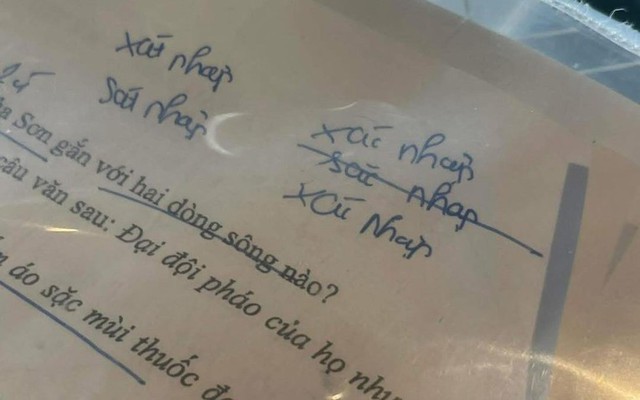 xát nhập
Sát nhập
xác nhập
sác nhập
xác Nhập
Sơn gắn với hai dòng sông nào?
câu văn sau: Đại đội pháo của họ như
áo sặc mùi thuốc